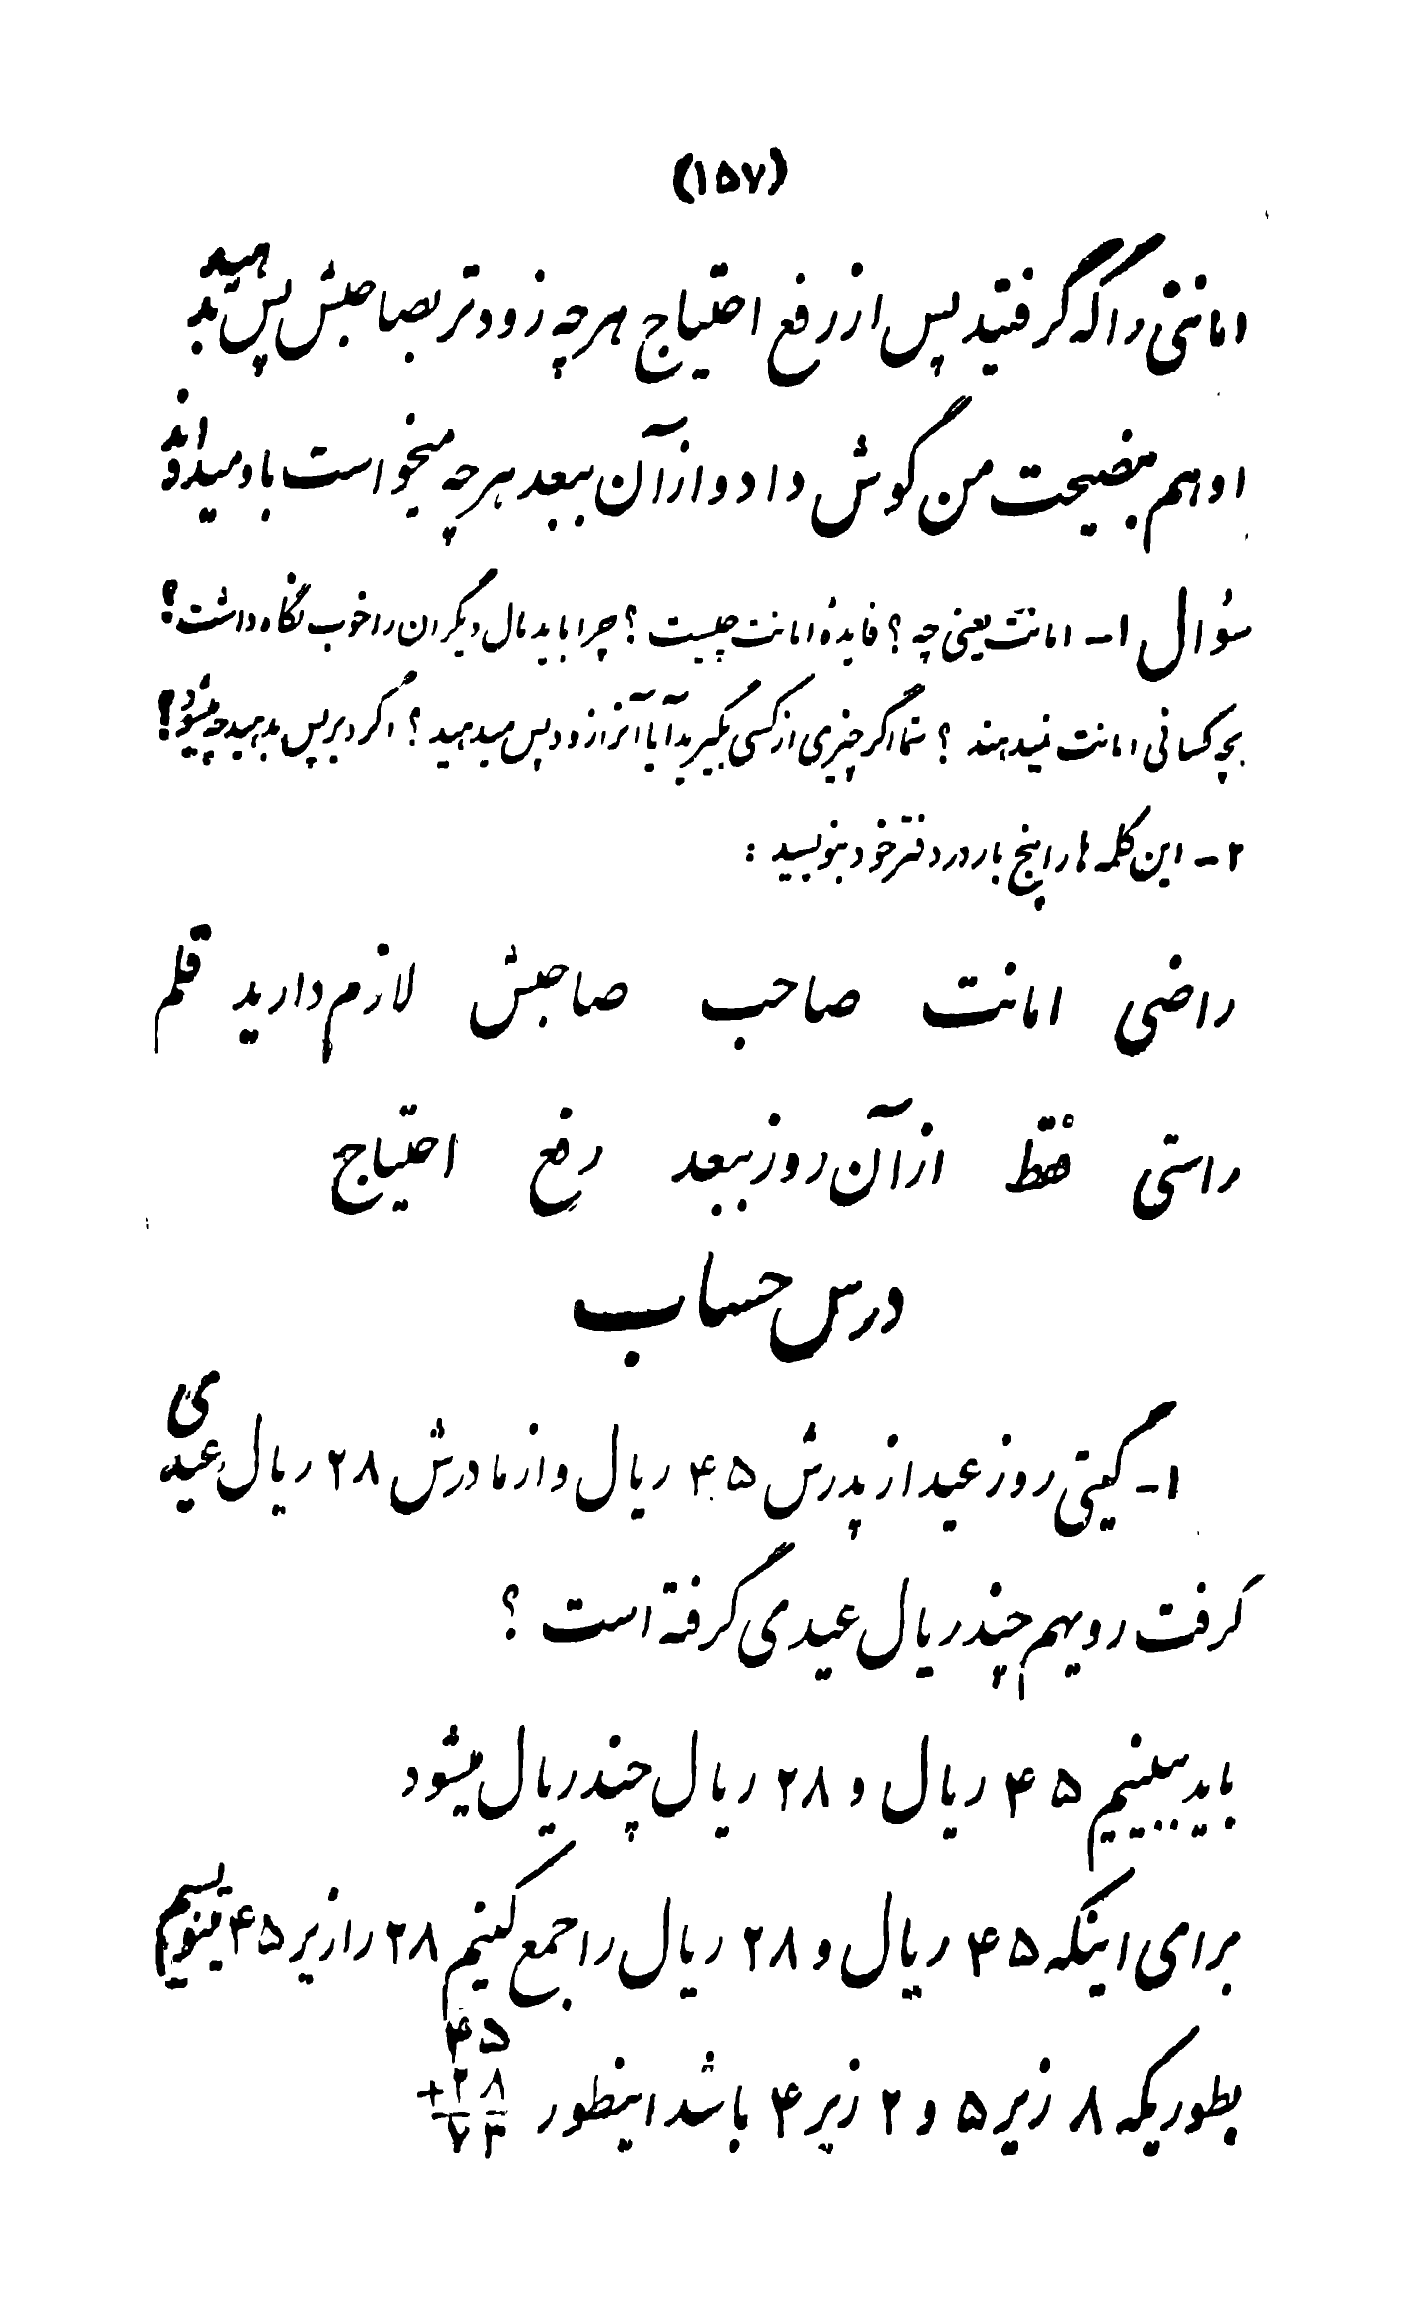 (۱۵۷)
امانتی را که گرفتید پس از رفع احتیاج هرچه زودتر بصاحبش پس بدهید
او هم بنصیحت من گوش داد و از آن ببعد هرچه میخواست باو میدادند
سؤال ۱- امانت یعنی چه ؟ فایدهٔ امانت چیست ؟ چرا باید مال دیگران را خوب نگاه داشت ؟
بچه کسانی امانت نمیدهند ؟ شما اگر چیزی از کسی بگیرید آیا آنرا زود پس میدهید ؟ اگر دیر پس بدهید چه میشود ؟
۲- این کلمه ها را پنج بار در دفتر خود بنویسید :
راضی امانت صاحب صاحبش لازم دارید قلم
راستی فقط از آن روز ببعد رفع احتیاج
درس حساب
۱- گیتی روز عید از پدرش ۴۵ ریال و از مادرش ۲۸ ریال عیدی
گرفت رویهم چند ریال عیدی گرفته است ؟
باید ببینیم ۴۵ ریال و ۲۸ ریال چند ریال میشود
برای اینکه ۴۵ ریال و ۲۸ ریال را جمع کنیم ۲۸ را زیر ۴۵ مینویسیم
بطوریکه ۸ زیر ۵ و ۲ زیر ۴ باشد اینطور
۴۵
+۲۸
۷۳